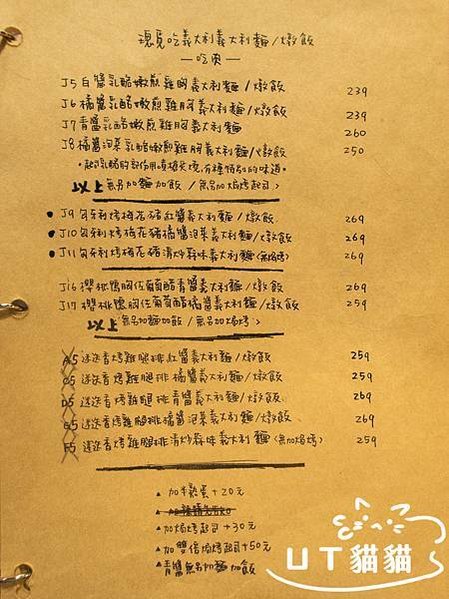 現覓吃義大利義大利麵/燉飯
—吃肉—
J5 白醬乳酪嫩煎雞胸義大利麵/燉飯 239
J6 橘醬乳酪嫩煎雞胸義大利麵/燉飯 239
J7 青醬乳酪嫩煎雞胸義大利麵 260
J8 橘醬泡菜乳酪嫩煎雞胸義大利麵/燉飯 250
以上無另加麵加飯/無另加焗烤起司>
• J9 匈牙利烤梅花豬紅醬義大利麵/燉飯. 269
• J10 匈牙利烤梅花豬橘醬泡菜義大利麵/燉飯 269
• J11 匈牙利烤梅花豬清炒蒜味義大利麵<無焗烤> 269
J16 櫻桃鴨胸佐葡萄醋青醬義大利麵/燉飯 269
J17 櫻桃鴨胸佐葡萄醋橘醬義大利麵/燉飯 259
以上<無另加麵加飯/無另加焗烤>
A5 迷迭香烤雞腿排紅醬義大利麵/燉飯 259
C5 迷迭香烤雞腿排橘醬義大利麵/燉飯 259
D5 迷迭香烤雞腿排青醬義大利麵/燉飯. 269
G5 迷迭香烤雞腿排橘醬泡菜義大利麵/燉飯. 269
F5 迷迭香烤雞腿排清炒蒜味義大利麵<無加焗烤> 259
▲ 加半熟蛋+20元
▲ 加焗烤起司+30元
▲ 加雙倍焗烤起司+50元
▲ 青醬無另加麵加飯
UT貓貓